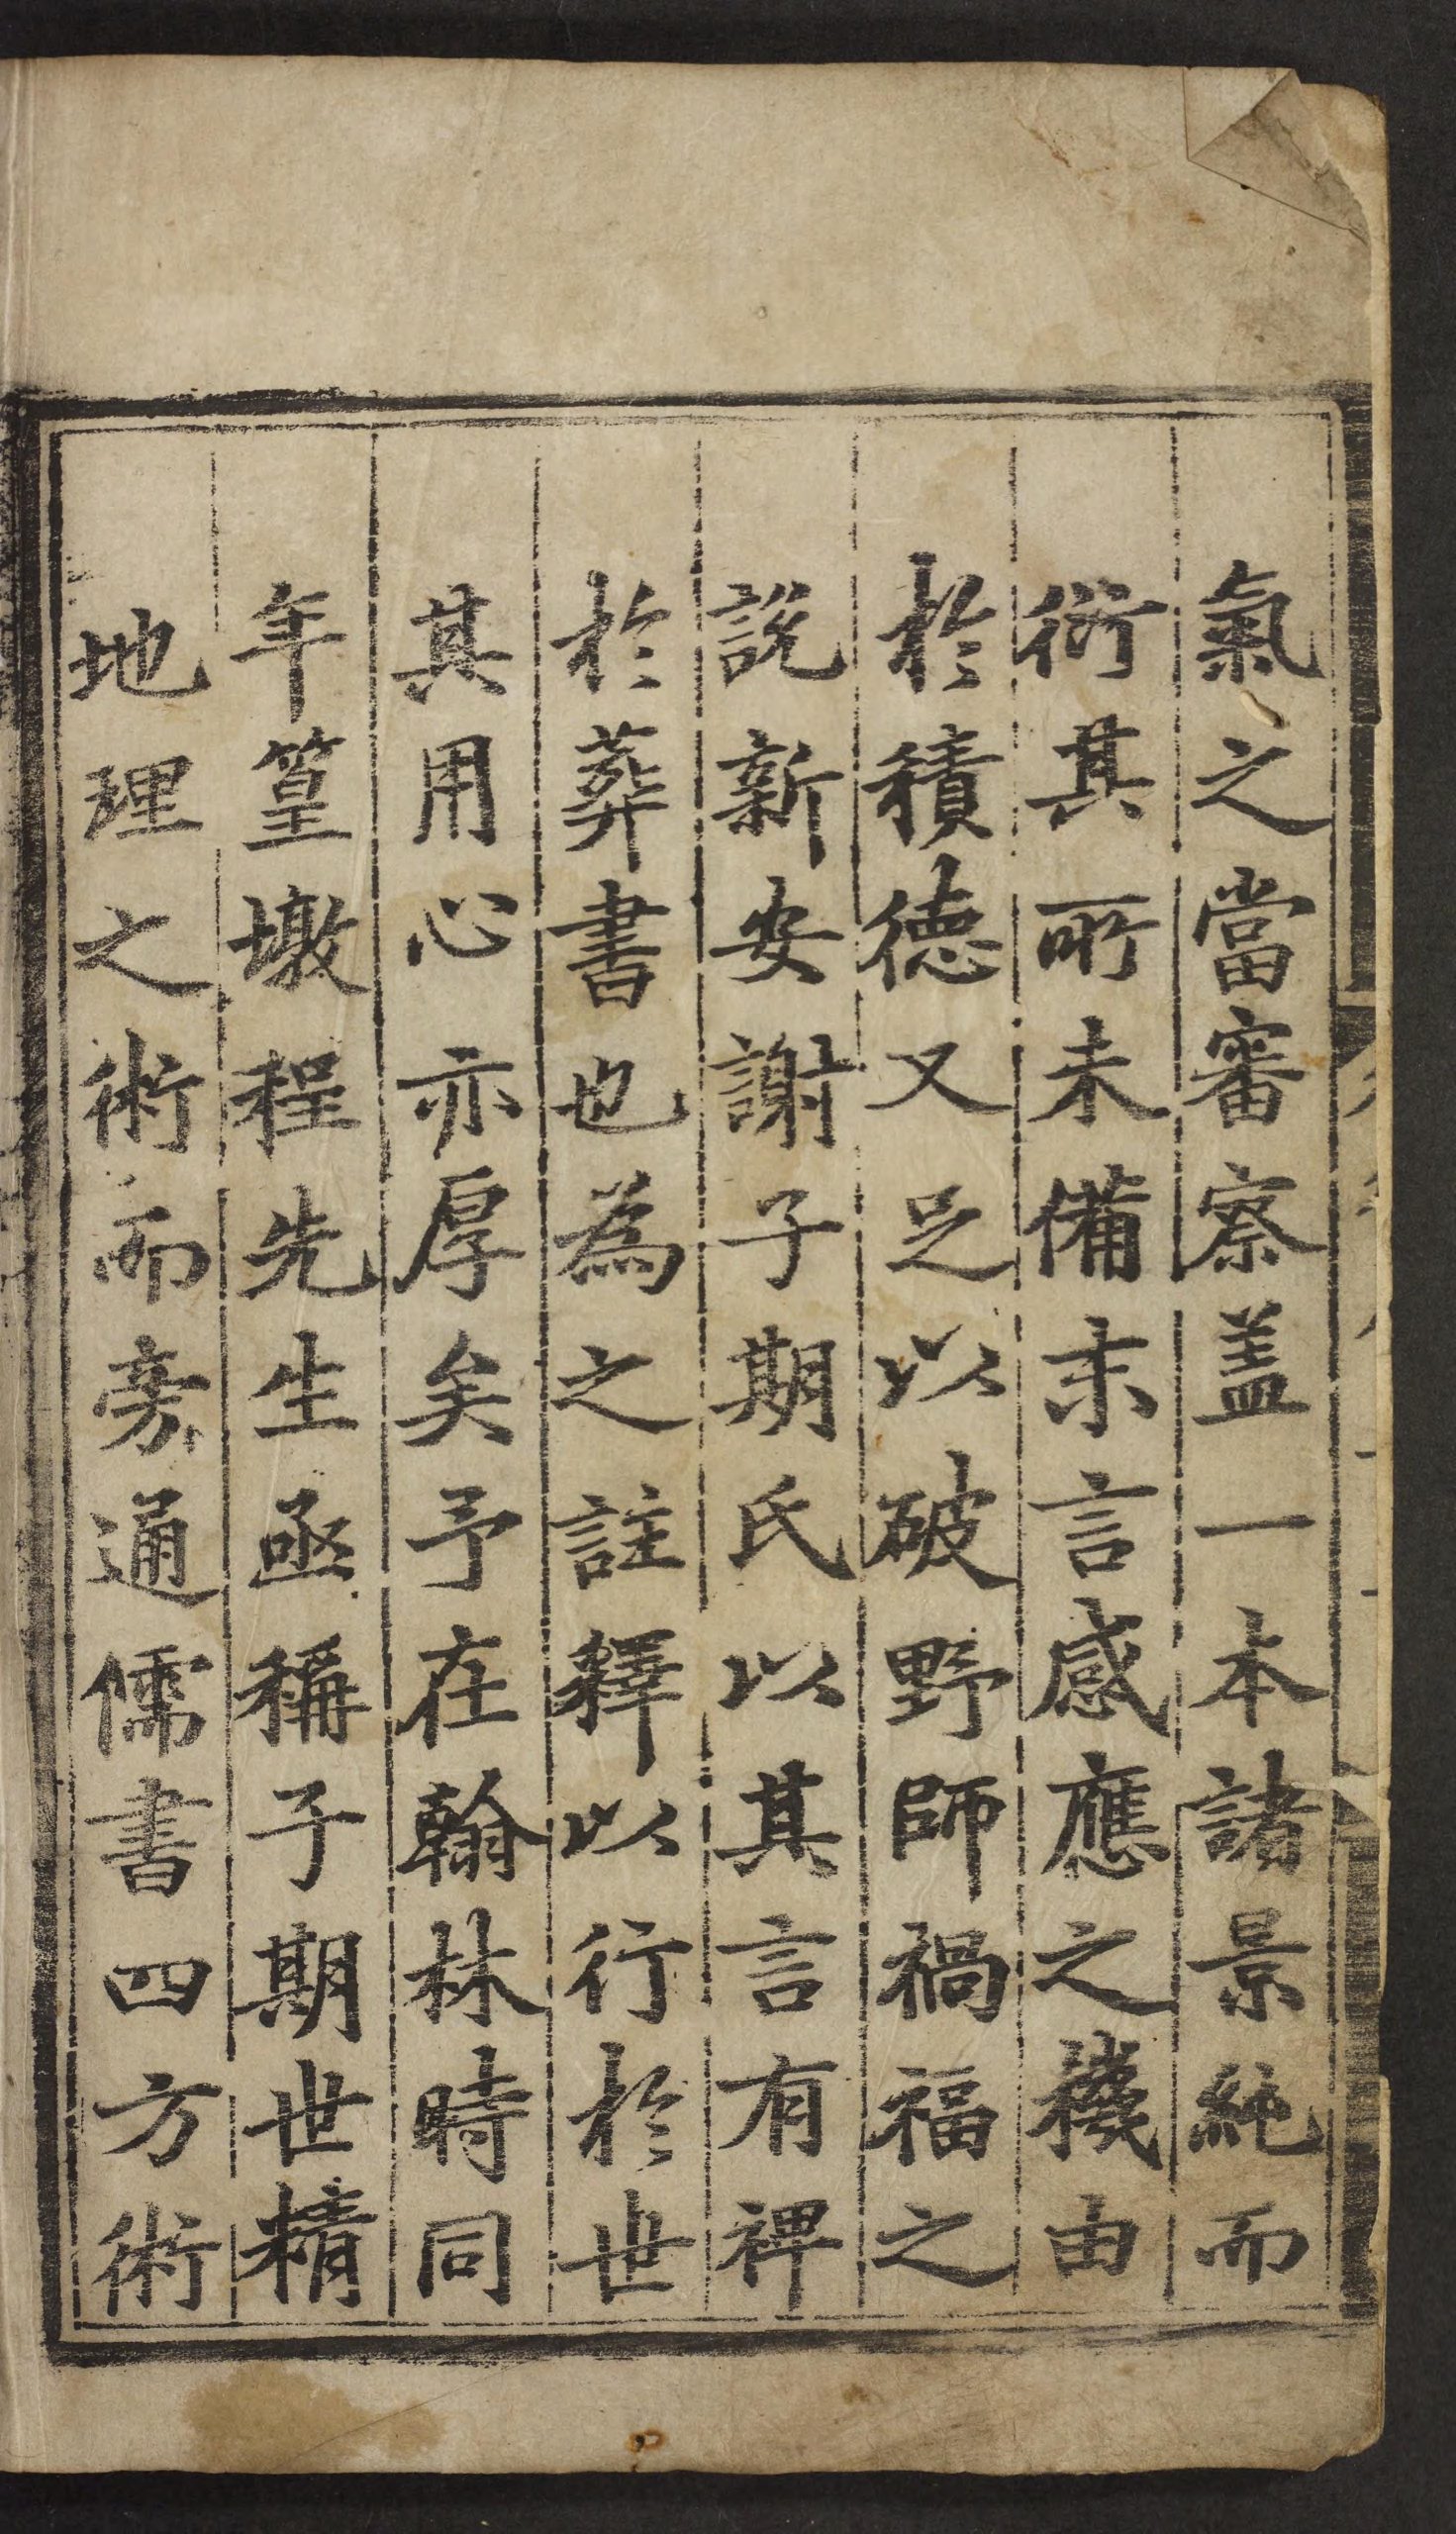 氣之當審察盖一本諸景純而
衍其所未備末言感應之機由
於積德又足以破野師禍福之
說新安謝子期氏以其言有裨
於葬書也為之註釋以行於世
其用心亦厚矣予在翰林時同
年篁墩程先生亟稱子期世精
地理之術而旁通儒書四方術